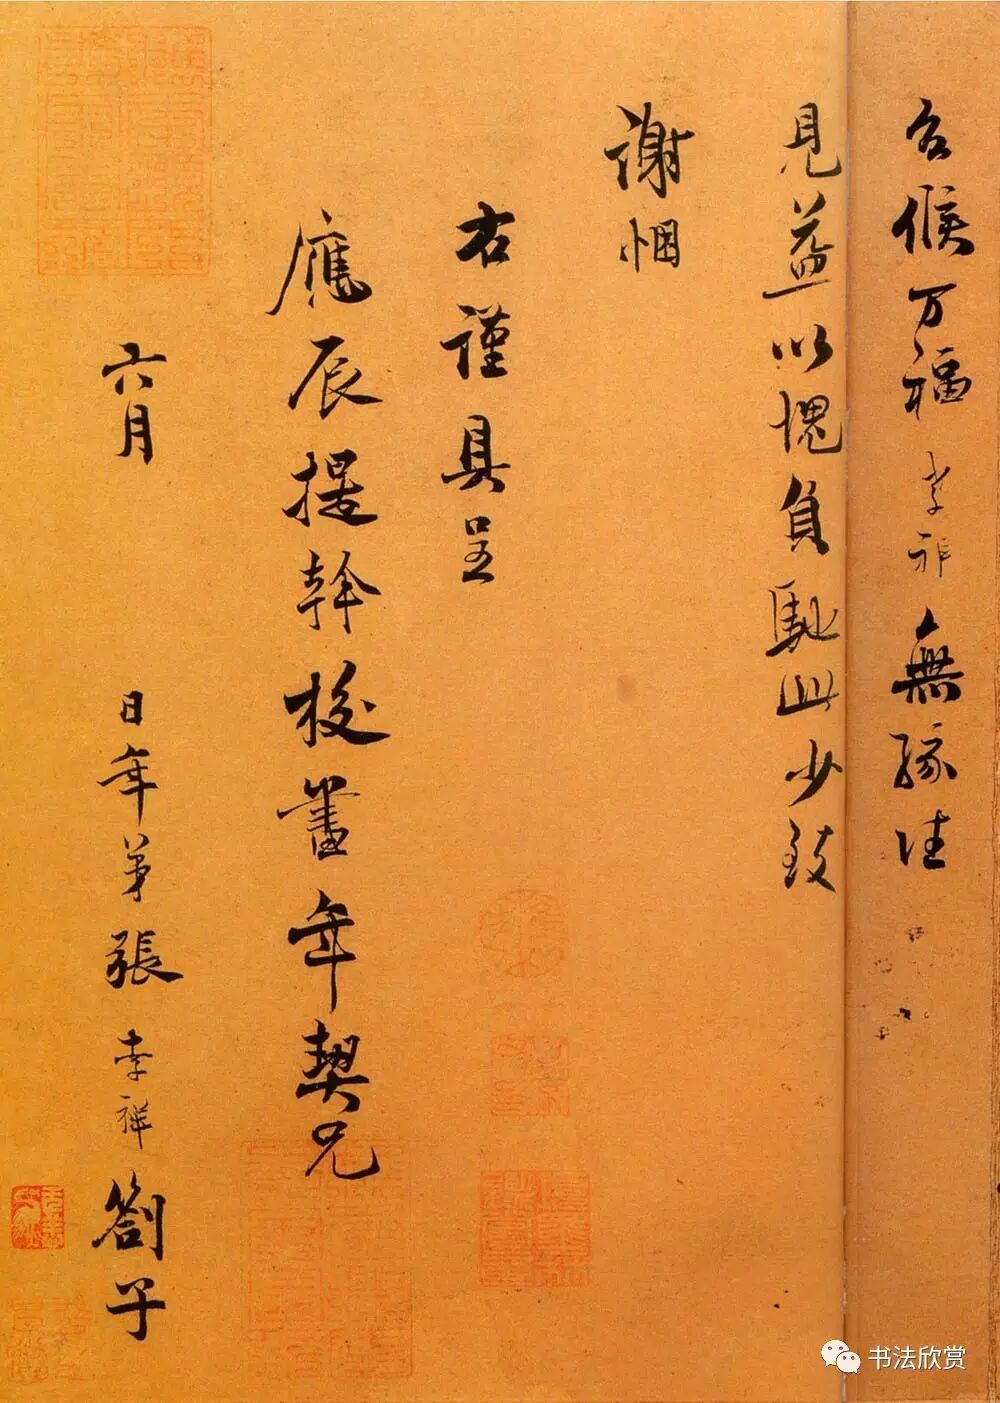 台候万福孝祥無緣往
見益以愧負馳此少致
謝悃
右謹具呈
應辰提幹校書年契兄
六月 日年弟張孝祥劄子
书法欣赏